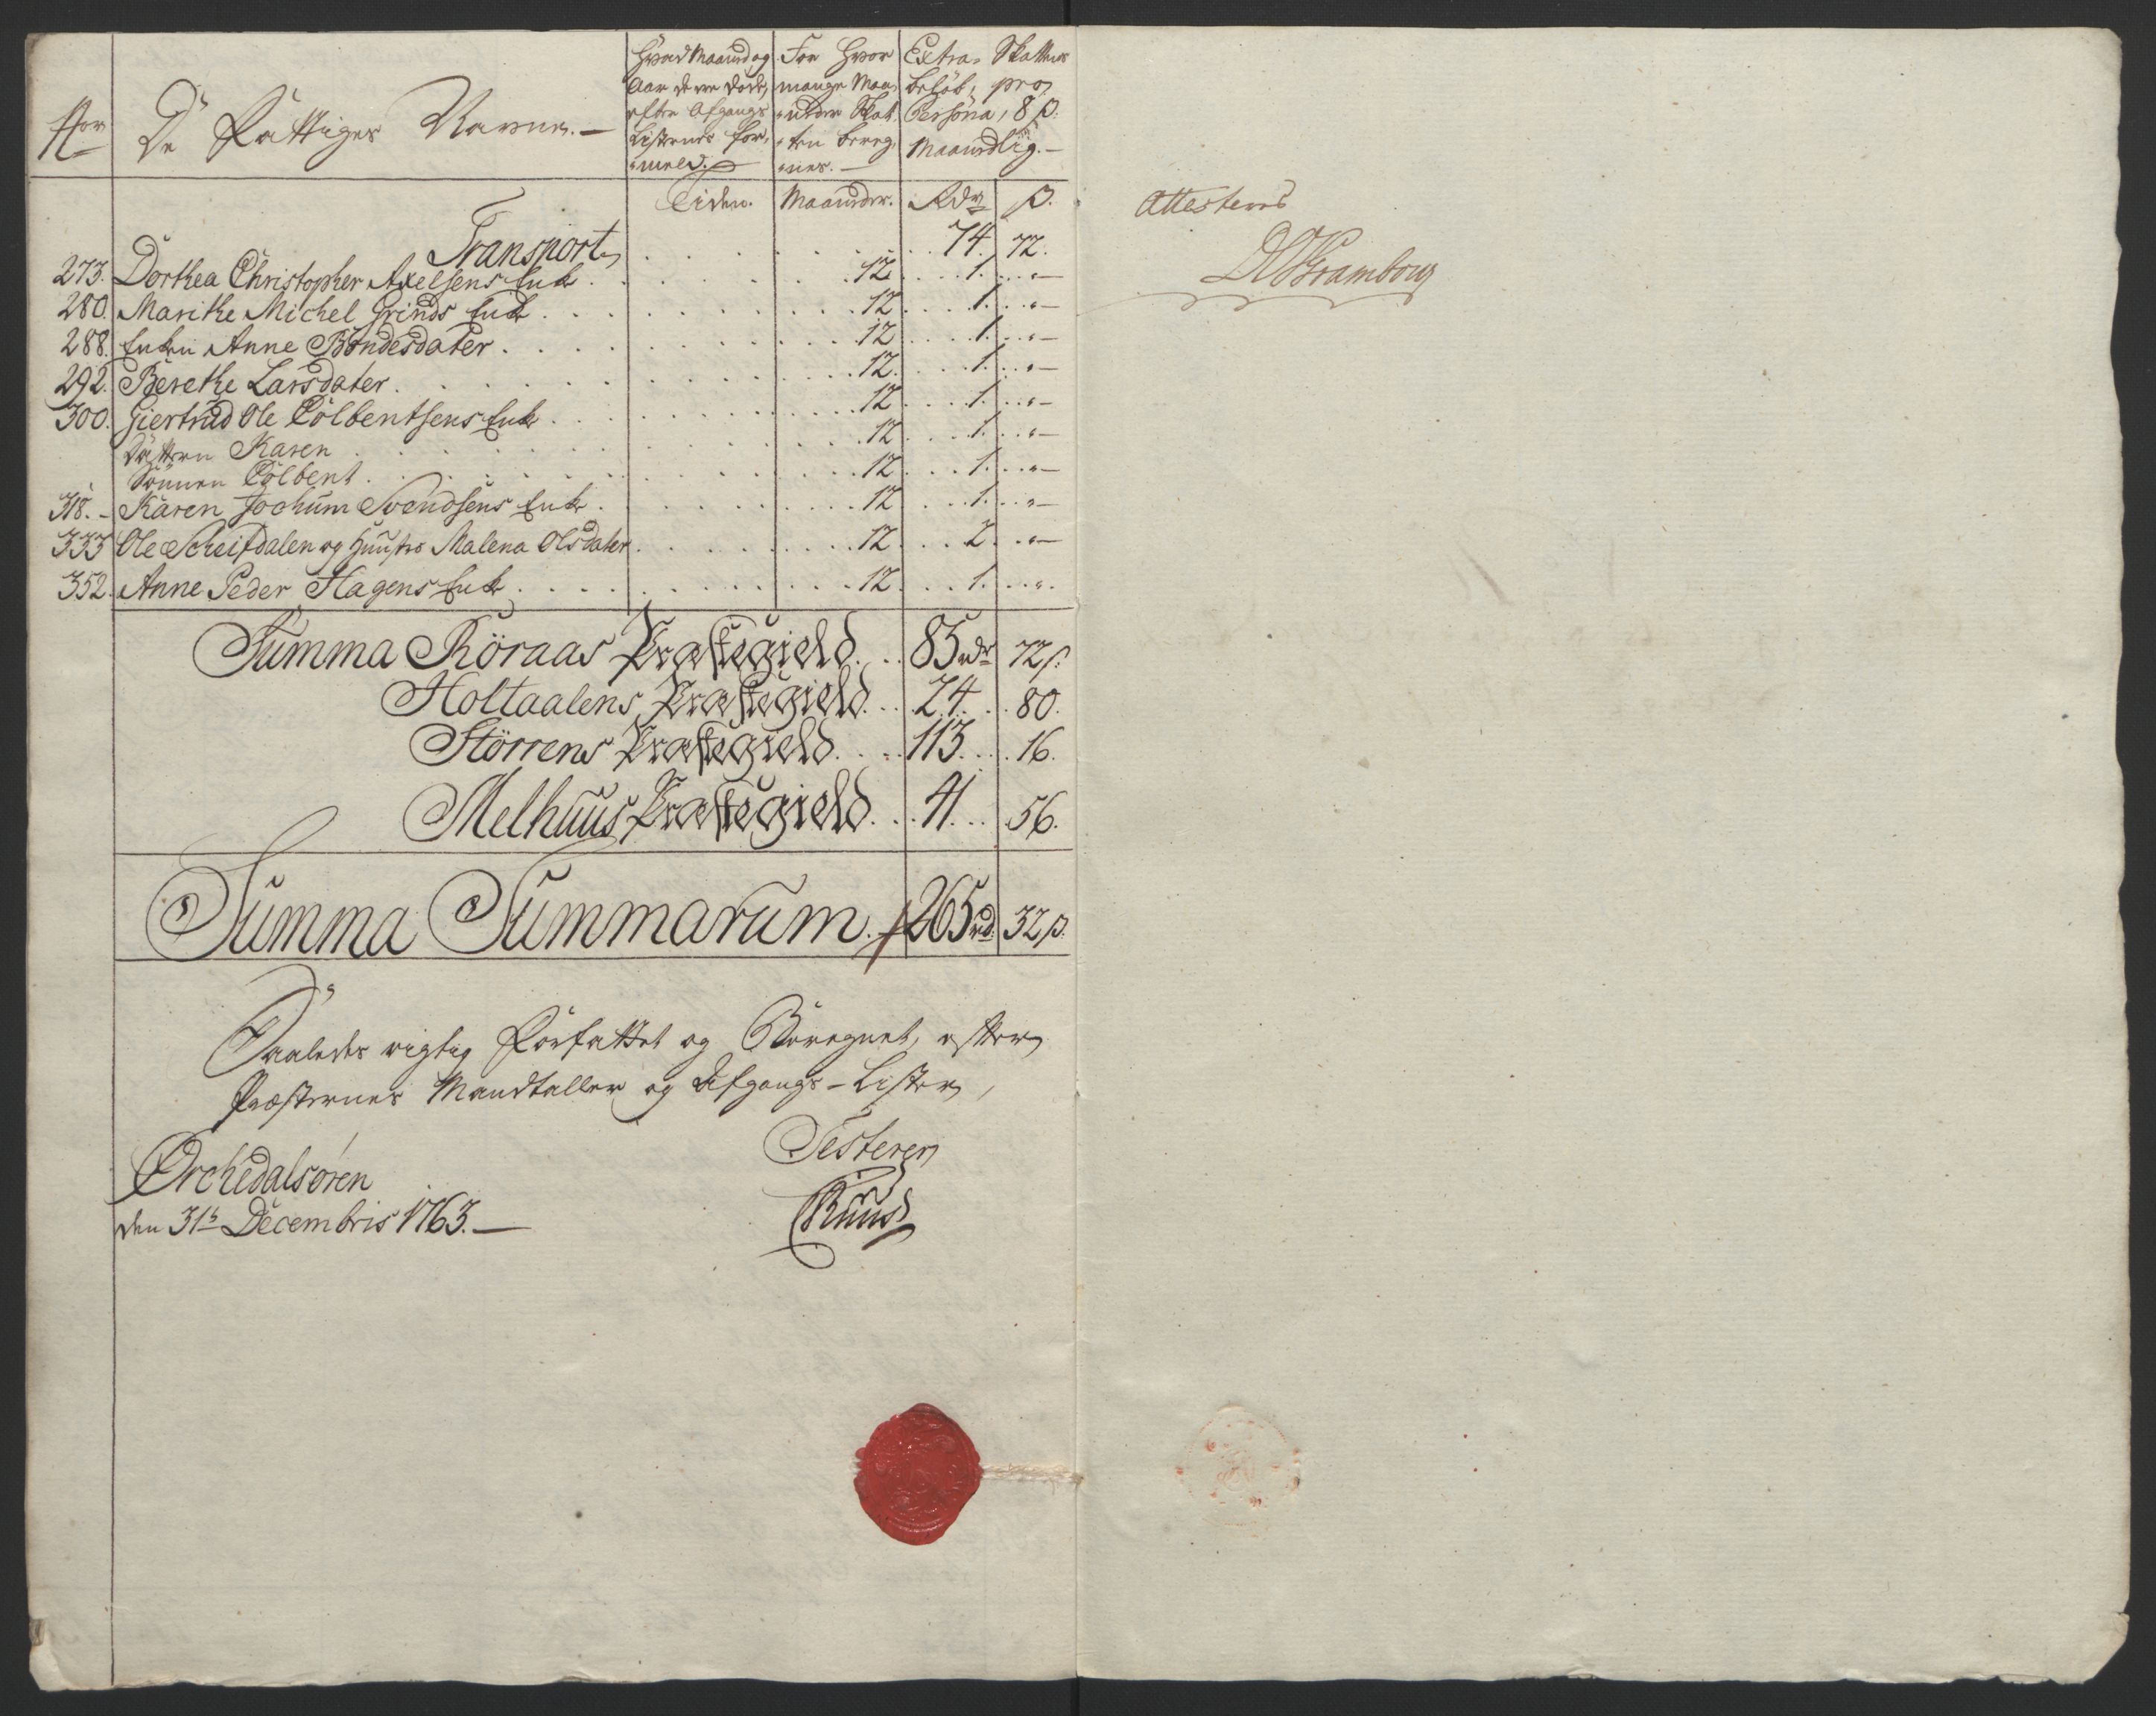 No. De Fattiges Navne. — Hvad Maaned og Aar de ere døde, efter Afgangs Listernes formeld. — For hvor mange Maaneder Skatten beregnes. — Extra-Skattens beløb, pro Persona, 8 β. Maanedlig. —
Tiden. Maaneder. Rdr β.
Transport . . . 74. 72.
273. Dorthea Christopher Axelsens Enke . . . 12 . . . 1. . . " —
280. Marithe Michel Grinds Enke . . . 12 . . . 1. . . " —
288. Enken Anne Bøndesdater . . . 12 . . . 1. . . " —
292. Berethe Larsdater . . . 12. . . . 1. . . " —
300. Giertrud Ole Colbentsens Enke . . . 12 . . . 1. . . " —
Dätteren Karen . . . 12 . . . 1. . . " —
Sönnen Colbent . . . 12 . . . 1. . . " —
318. – Karen Jochum Svendsens Enke . . . 12 . . . 1. . . " —
333 Ole Scheifdalen og Huustro Malena Olsdater . . . 12 . . . 2. . . " —
352. Anne Peder Hagens Enke . . . 12 . . . 1. . . ".
Summa Röraas Præstegield . . 85 rdr 72 β.
Holtaalens Præstegield . . . 24. . . 80.
Störrens Præstegield . . . 113. . . 16.
Melhuus Præstegield . . . 41. . . 56.
Summa Summarum . 265 rd. 32 β.
Saaledes rigtig Forfattet og Beregnet, efter
Præsternes Mandtaller og Afgangs-Lister,
Testerer
Orchedalsøren
den 31te Decembris 1763. —
Attesteres